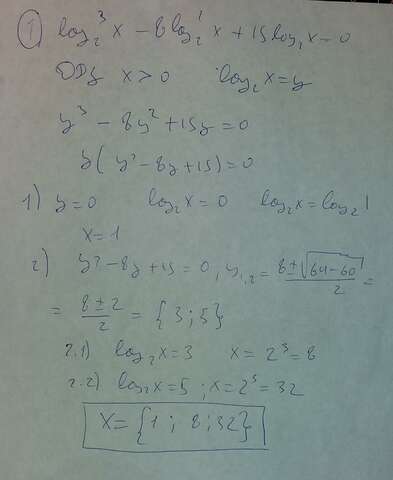 ① log₂³x − 8log₂²x + 15log₂x = 0
ОДЗ x > 0 log₂x = y
y³ − 8y² + 15y = 0
y(y² − 8y + 15) = 0
1) y = 0 log₂x = 0 log₂x = log₂1
x = 1
2) y² − 8y + 15 = 0, y₁,₂ = (8 ± √(64 − 60))/2 =
= (8 ± 2)/2 = {3; 5}
2.1) log₂x = 3 x = 2³ = 8
2.2) log₂x = 5; x = 2⁵ = 32
x = {1; 8; 32}